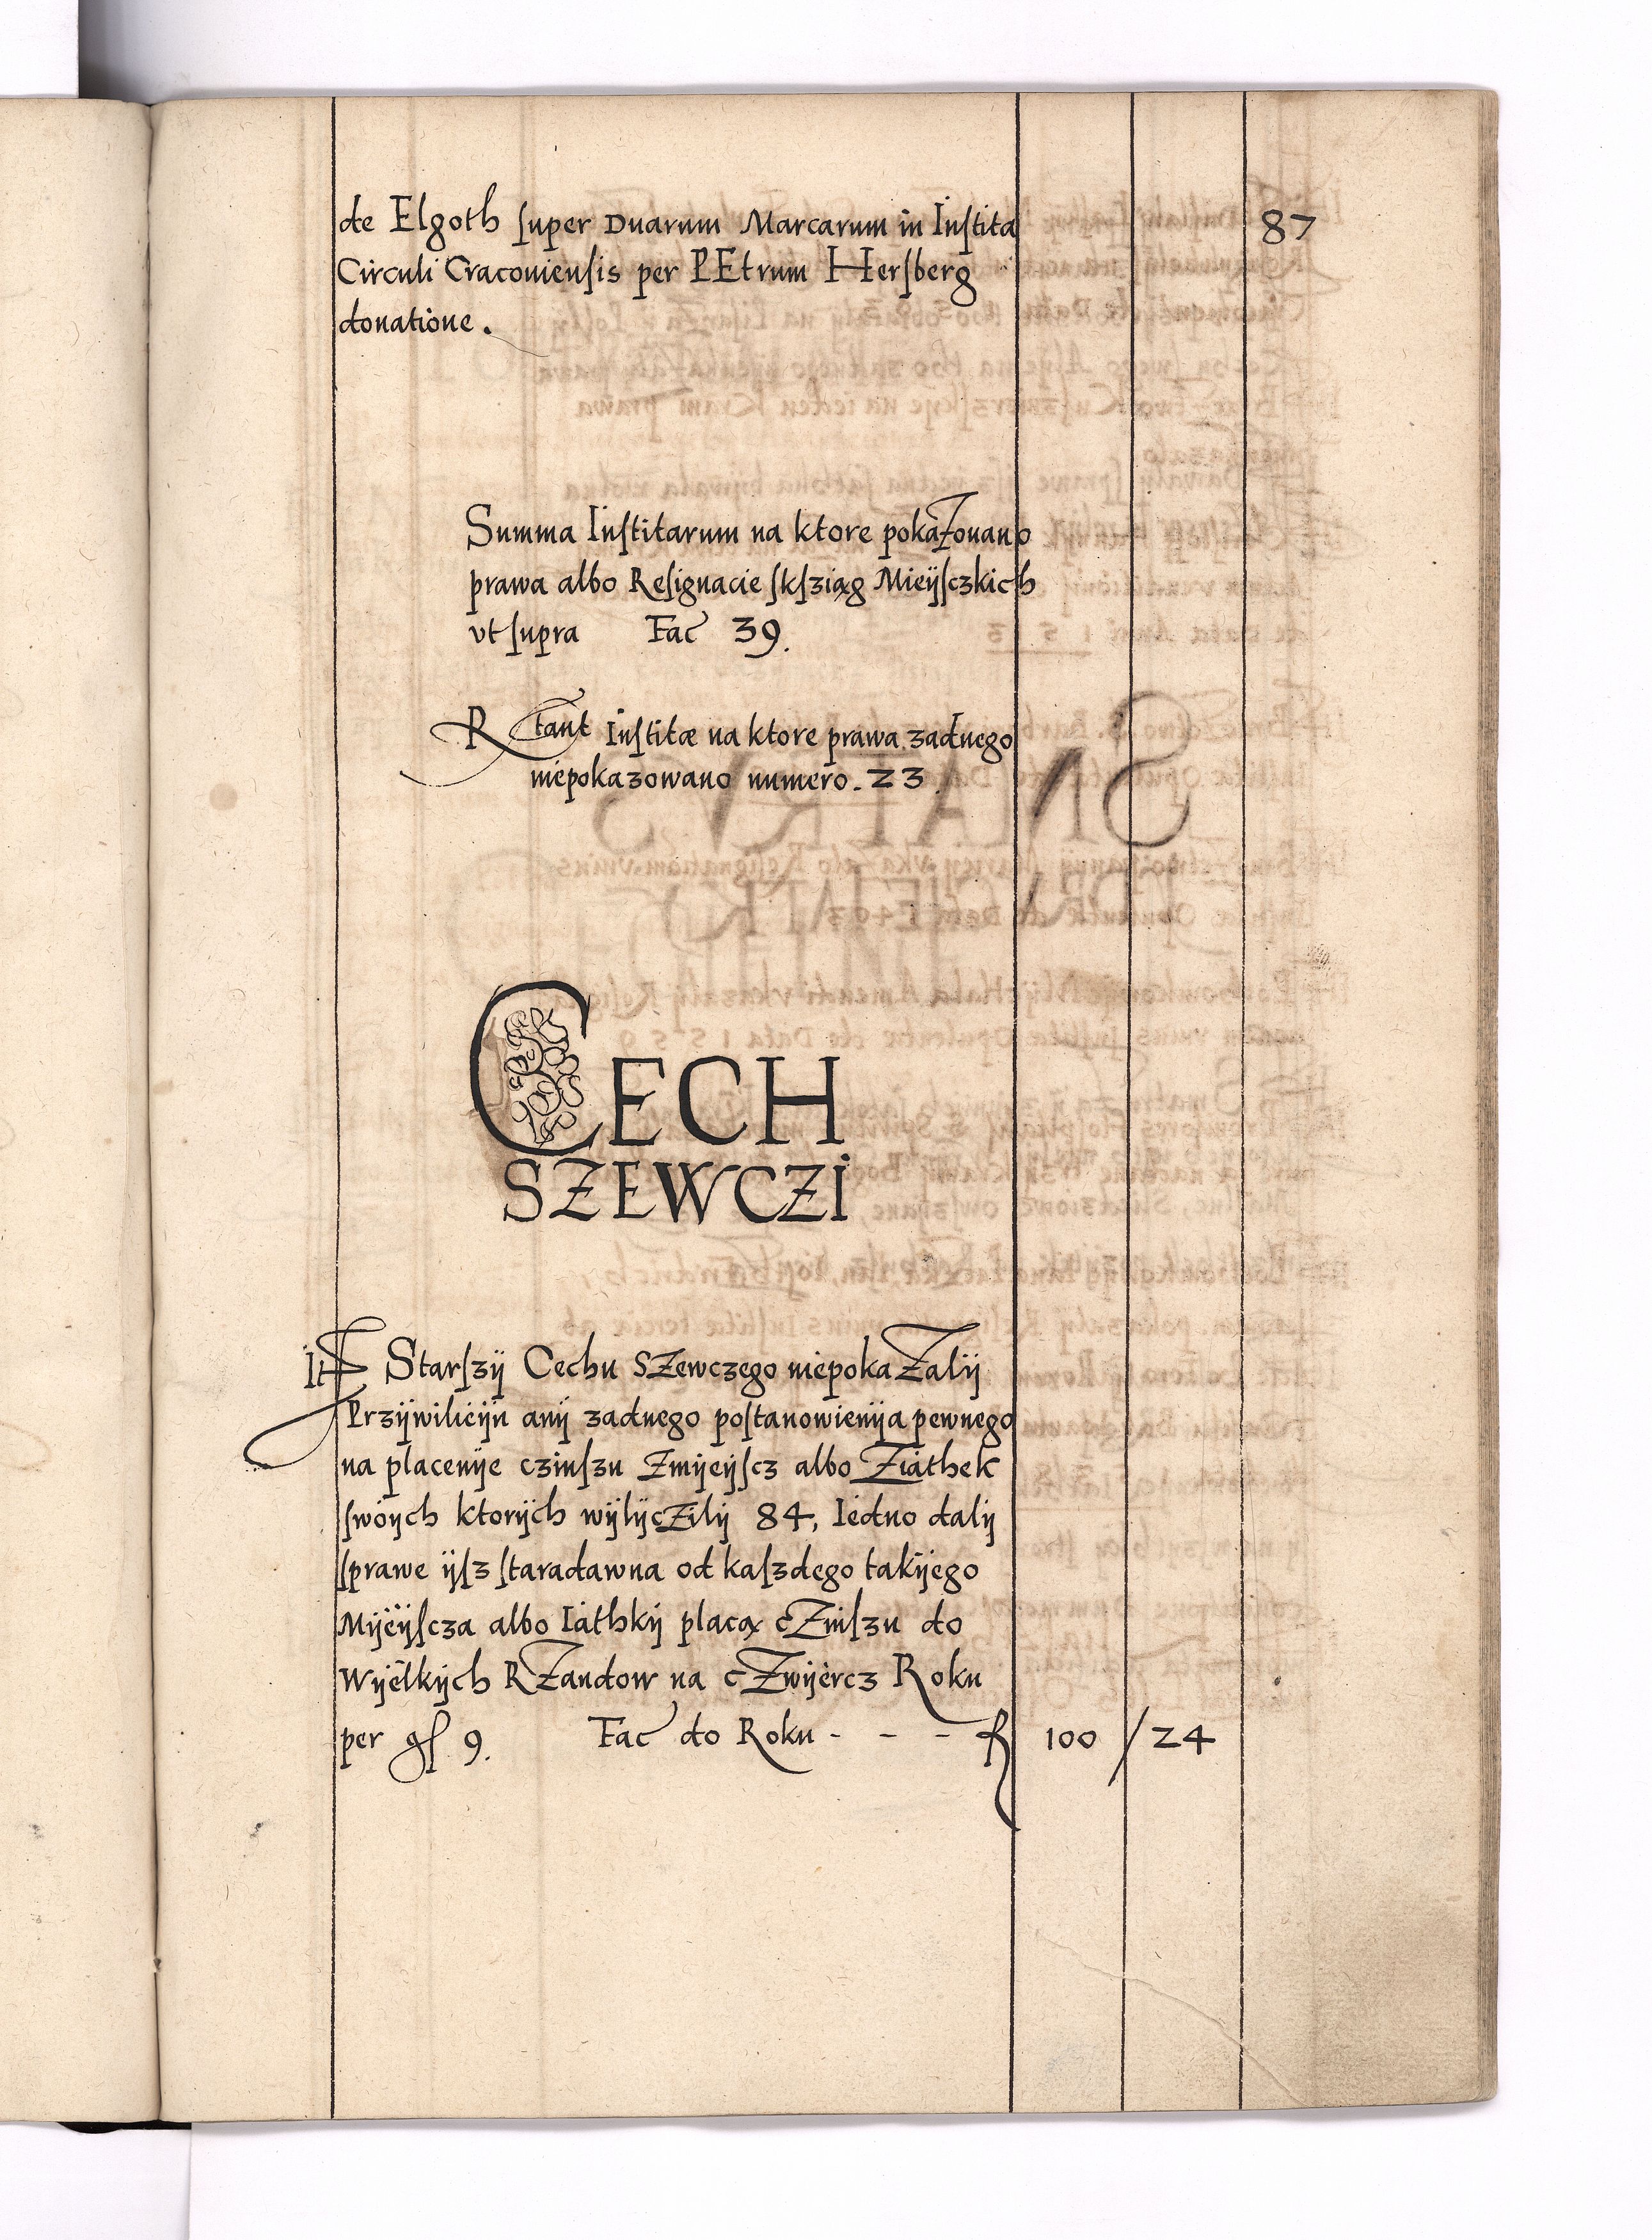 87
de Elgoth ſuper Duarum Marcarum in Inſtita
Circuli Cracouienſis per PEtrum Herſberg
donatione.
Summa Inſtitarum na ktore pokaZouano
prawa albo Reſignacie ſkſziąg Mieÿſczkich
vt ſupra Fac 39.
Rtant Inſtitæ na ktore prawa zadnego
niepokazowano numero. 23.
CECH
SZEWCZI
It Starſzÿ Cechu SZewczego niepokaZalÿ
Przÿwilieÿu anÿ zadnego poſtanowienÿa pewnego
na placenÿe czinſzu Zmÿeÿſcz albo Ziathek
ſwoÿch ktorÿch wÿlÿcZilÿ 84, Iedno dalÿ
ſprawe ÿſz ſtaradawna od kaſzdego takÿego
Mÿeÿſcza albo Iathkÿ placą cZinſzu do
Wÿelkÿch RZandow na cZwÿercz Roku
per gſ 9. Fac do Roku - - - f 100 / 24